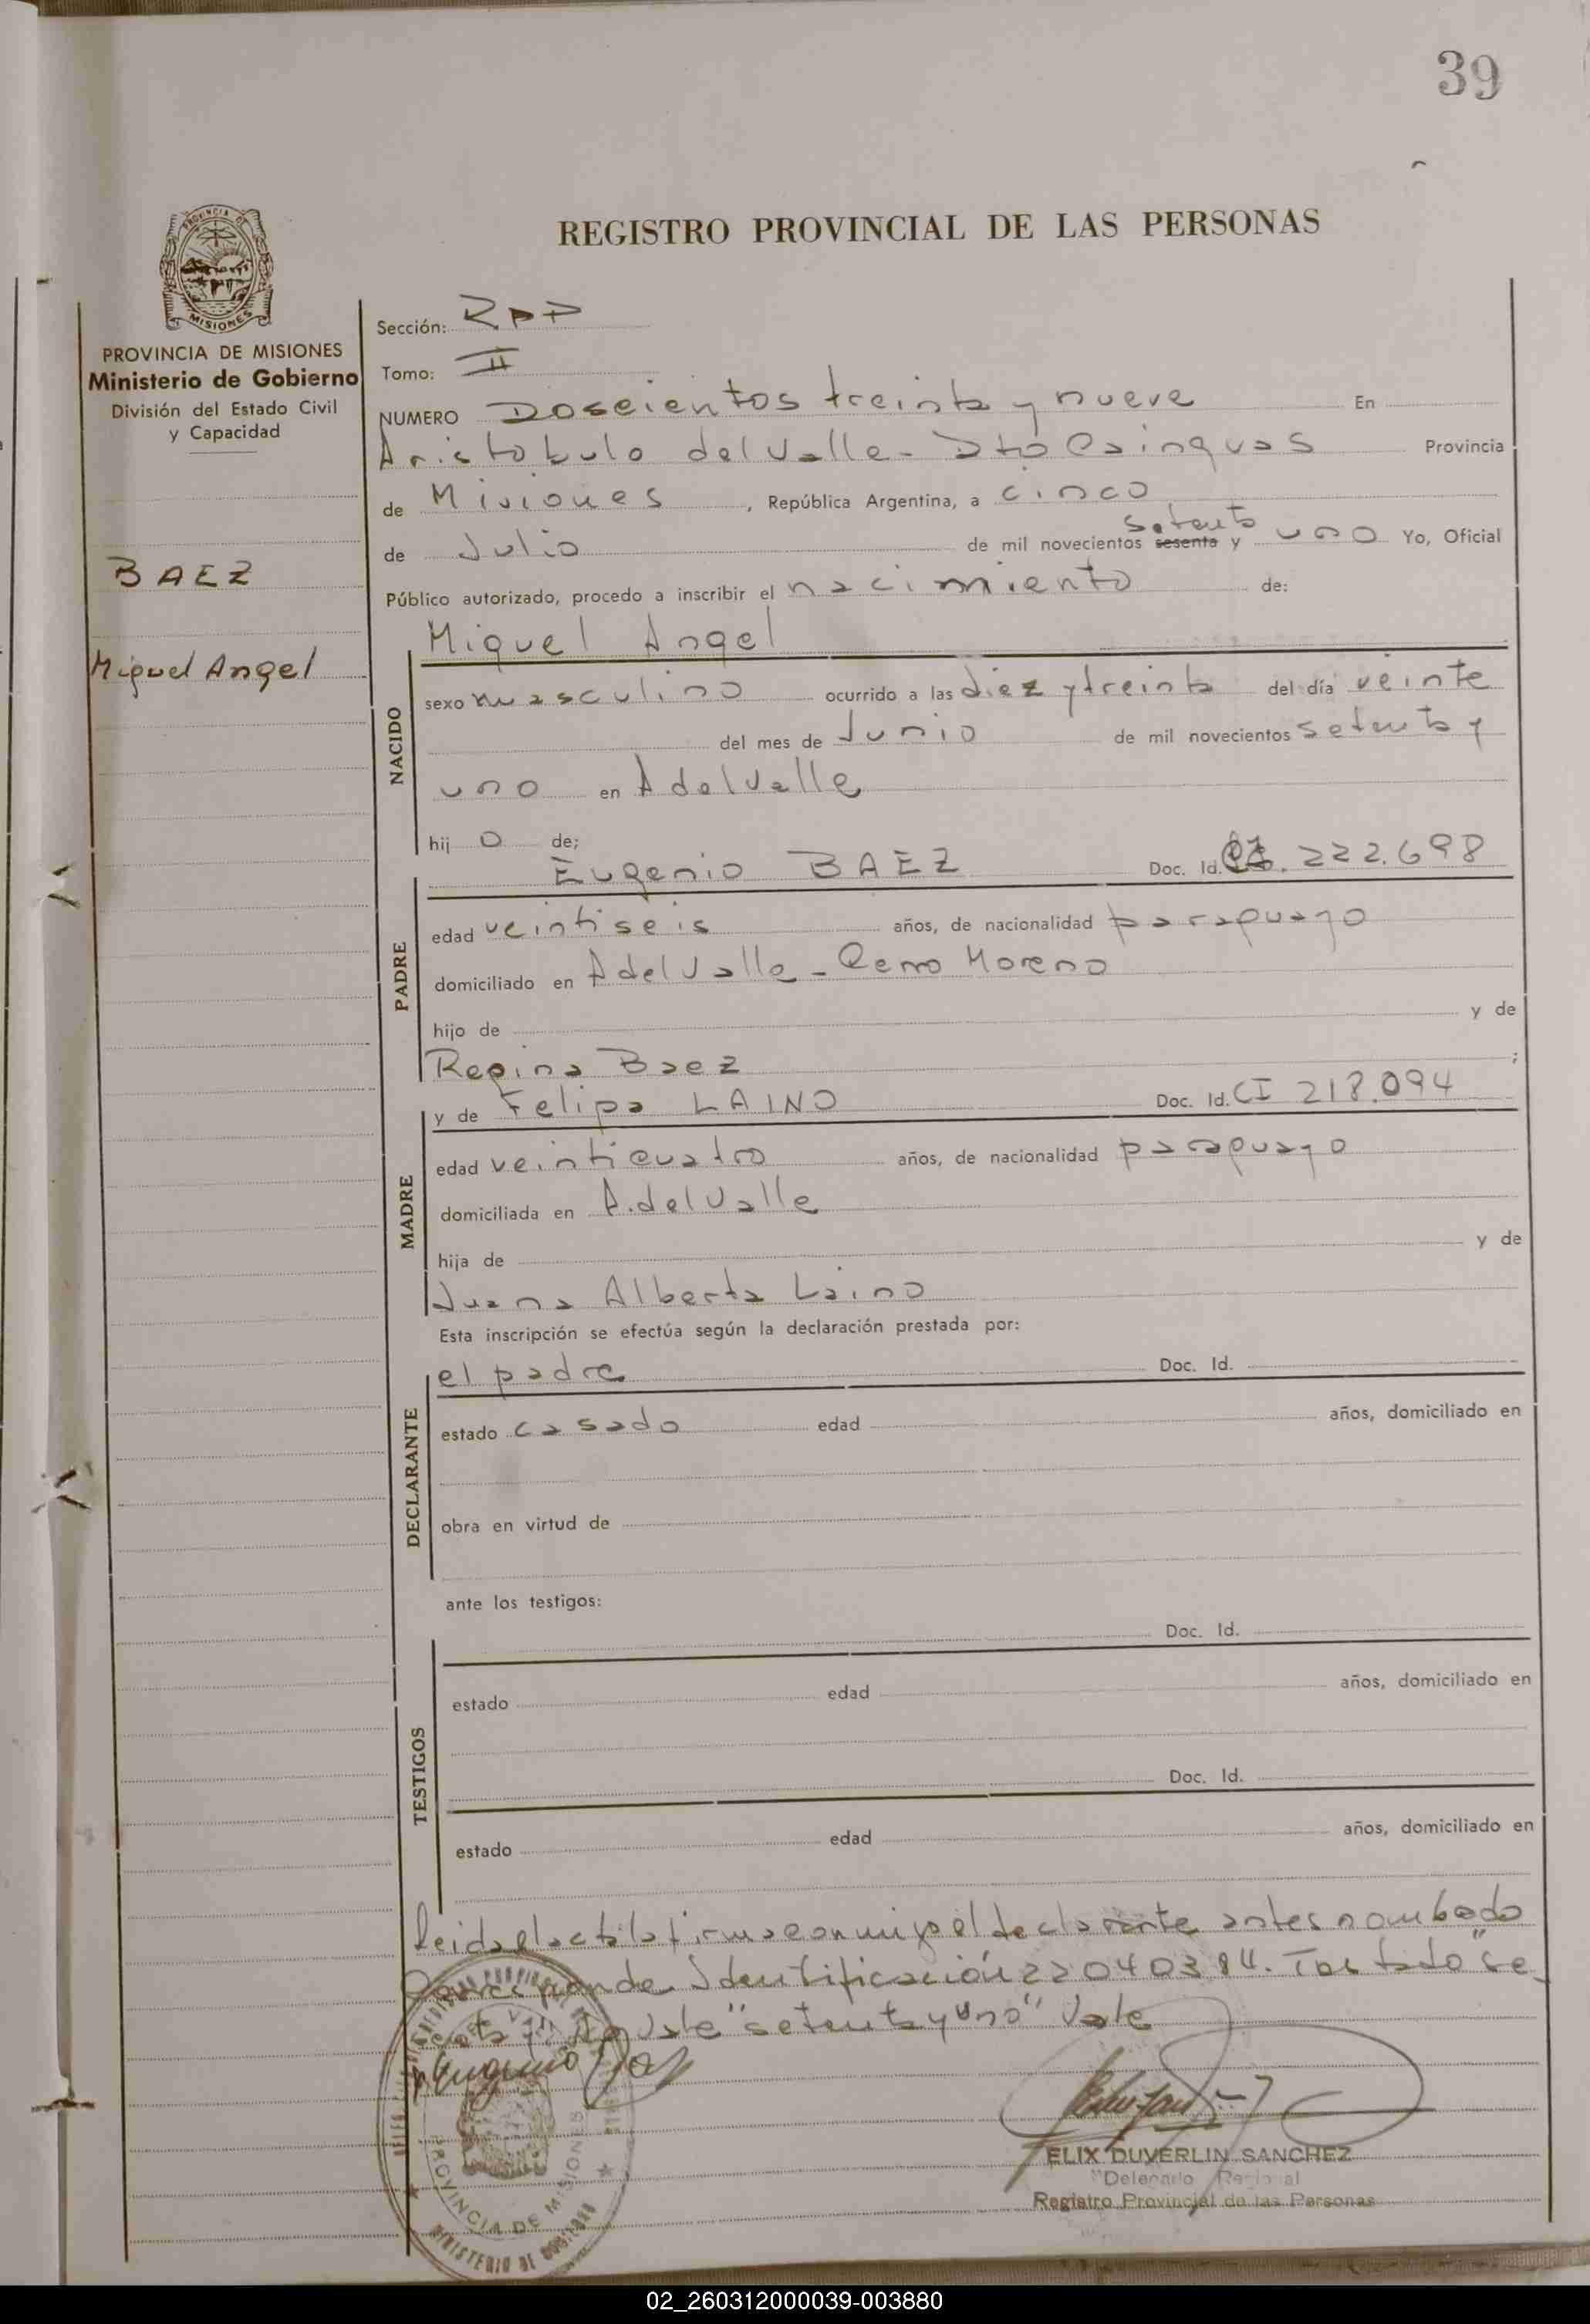 39
REGISTRO PROVINCIAL DE LAS PERSONAS
PROVINCIA DE
MISIONES
PROVINCIA DE MISIONES
Ministerio de Gobierno
División del Estado Civil
y Capacidad
BAEZ
Miguel Angel
Sección: RPP
Tomo: II
NUMERO Doscientos treinta y nueve En
Aristobulo del Valle - Dto Cainguas Provincia
de Misiones, República Argentina, a cinco
setenta
de Julio de mil novecientos sesenta y uno Yo, Oficial
Público autorizado, procedo a inscribir el nacimiento de:
NACIDO
Miguel Angel
sexo masculino ocurrido a las diez y treinta del día veinte
del mes de Junio de mil novecientos setenta y
uno en A del Valle
hijo de;
PADRE
Eugenio BAEZ Doc. Id. 222.698
edad veintiseis años, de nacionalidad paraguayo
domiciliado en A del Valle - Cerro Moreno
hijo de y de
Regina Baez ;
MADRE
y de Felipa LAINO Doc. Id. CI 218.094
edad veinticuatro años, de nacionalidad paraguayo
domiciliada en A. del Valle
hija de y de
Juana Alberta Laino
Esta inscripción se efectúa según la declaración prestada por:
DECLARANTE
el padre Doc. Id.
estado casado edad años, domiciliado en
obra en virtud de
ante los testigos:
TESTIGOS
Doc. Id.
estado edad años, domiciliado en
Doc. Id.
estado edad años, domiciliado en
Leida el acta la firma conmigo el declarante antes nombado
Corresponde Identificación 22040384. Tastado "se
vale "setenta y uno" Vale
Eugenio
ELIX DUVERLIN SANCHEZ
Delegado Regional
Registro Provincial de las Personas
PROVINCIA DE MISIONES
MINISTERIO DE GOBIERNO
02_260312000039-003880